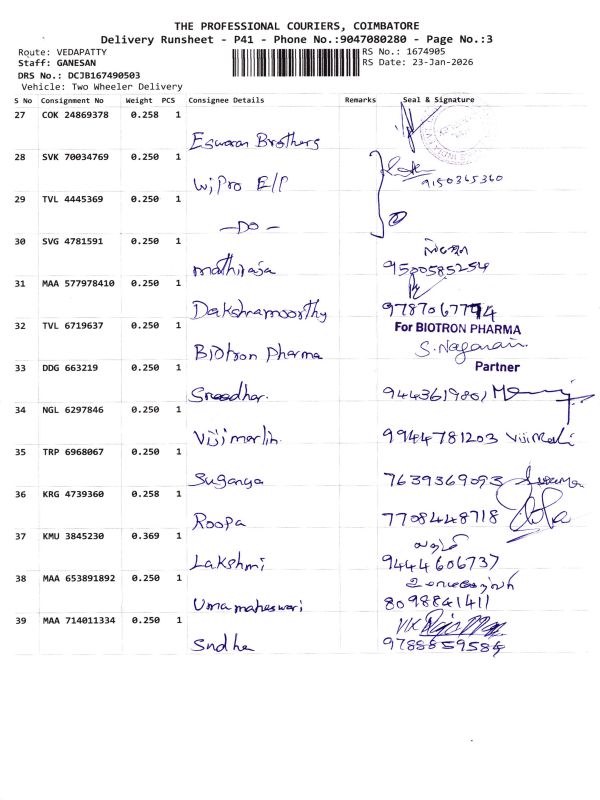 THE PROFESSIONAL COURIERS, COIMBATORE
Delivery Runsheet - P41 - Phone No.:9047080280 - Page No.:3
Route: VEDAPATTY
RS No.: 1674905
Staff: GANESAN
RS Date: 23-Jan-2026
DRS No.: DCJB167490503
Vehicle: Two Wheeler Delivery
S No Consignment No Weight PCS Consignee Details Remarks Seal & Signature
27 COK 24869378 0.258 1
Eswaran Brothers
28 SVK 70034769 0.250 1
Wipro E/P
9150365360
29 TVL 4445369 0.250 1
-Do-
30 SVG 4781591 0.250 1
Mathiraja 9500585254
31 MAA 577978410 0.250 1
Dakshnamoorthy 9787067794
32 TVL 6719637 0.250 1 For BIOTRON PHARMA
Biotron Pharma S. Nagarajan
Partner
33 DDG 663219 0.250 1
Sreedhar. 9443619801
34 NGL 6297846 0.250 1
Viji merlin. 9944781203
35 TRP 6968067 0.250 1
Suganya 7639369093
36 KRG 4739360 0.258 1
Roopa 7708448718
37 KMU 3845230 0.369 1
Lakshmi 9444606737
38 MAA 653891892 0.250 1
Uma maheswari 8098841411
39 MAA 714011334 0.250 1
Sudha 9788859584